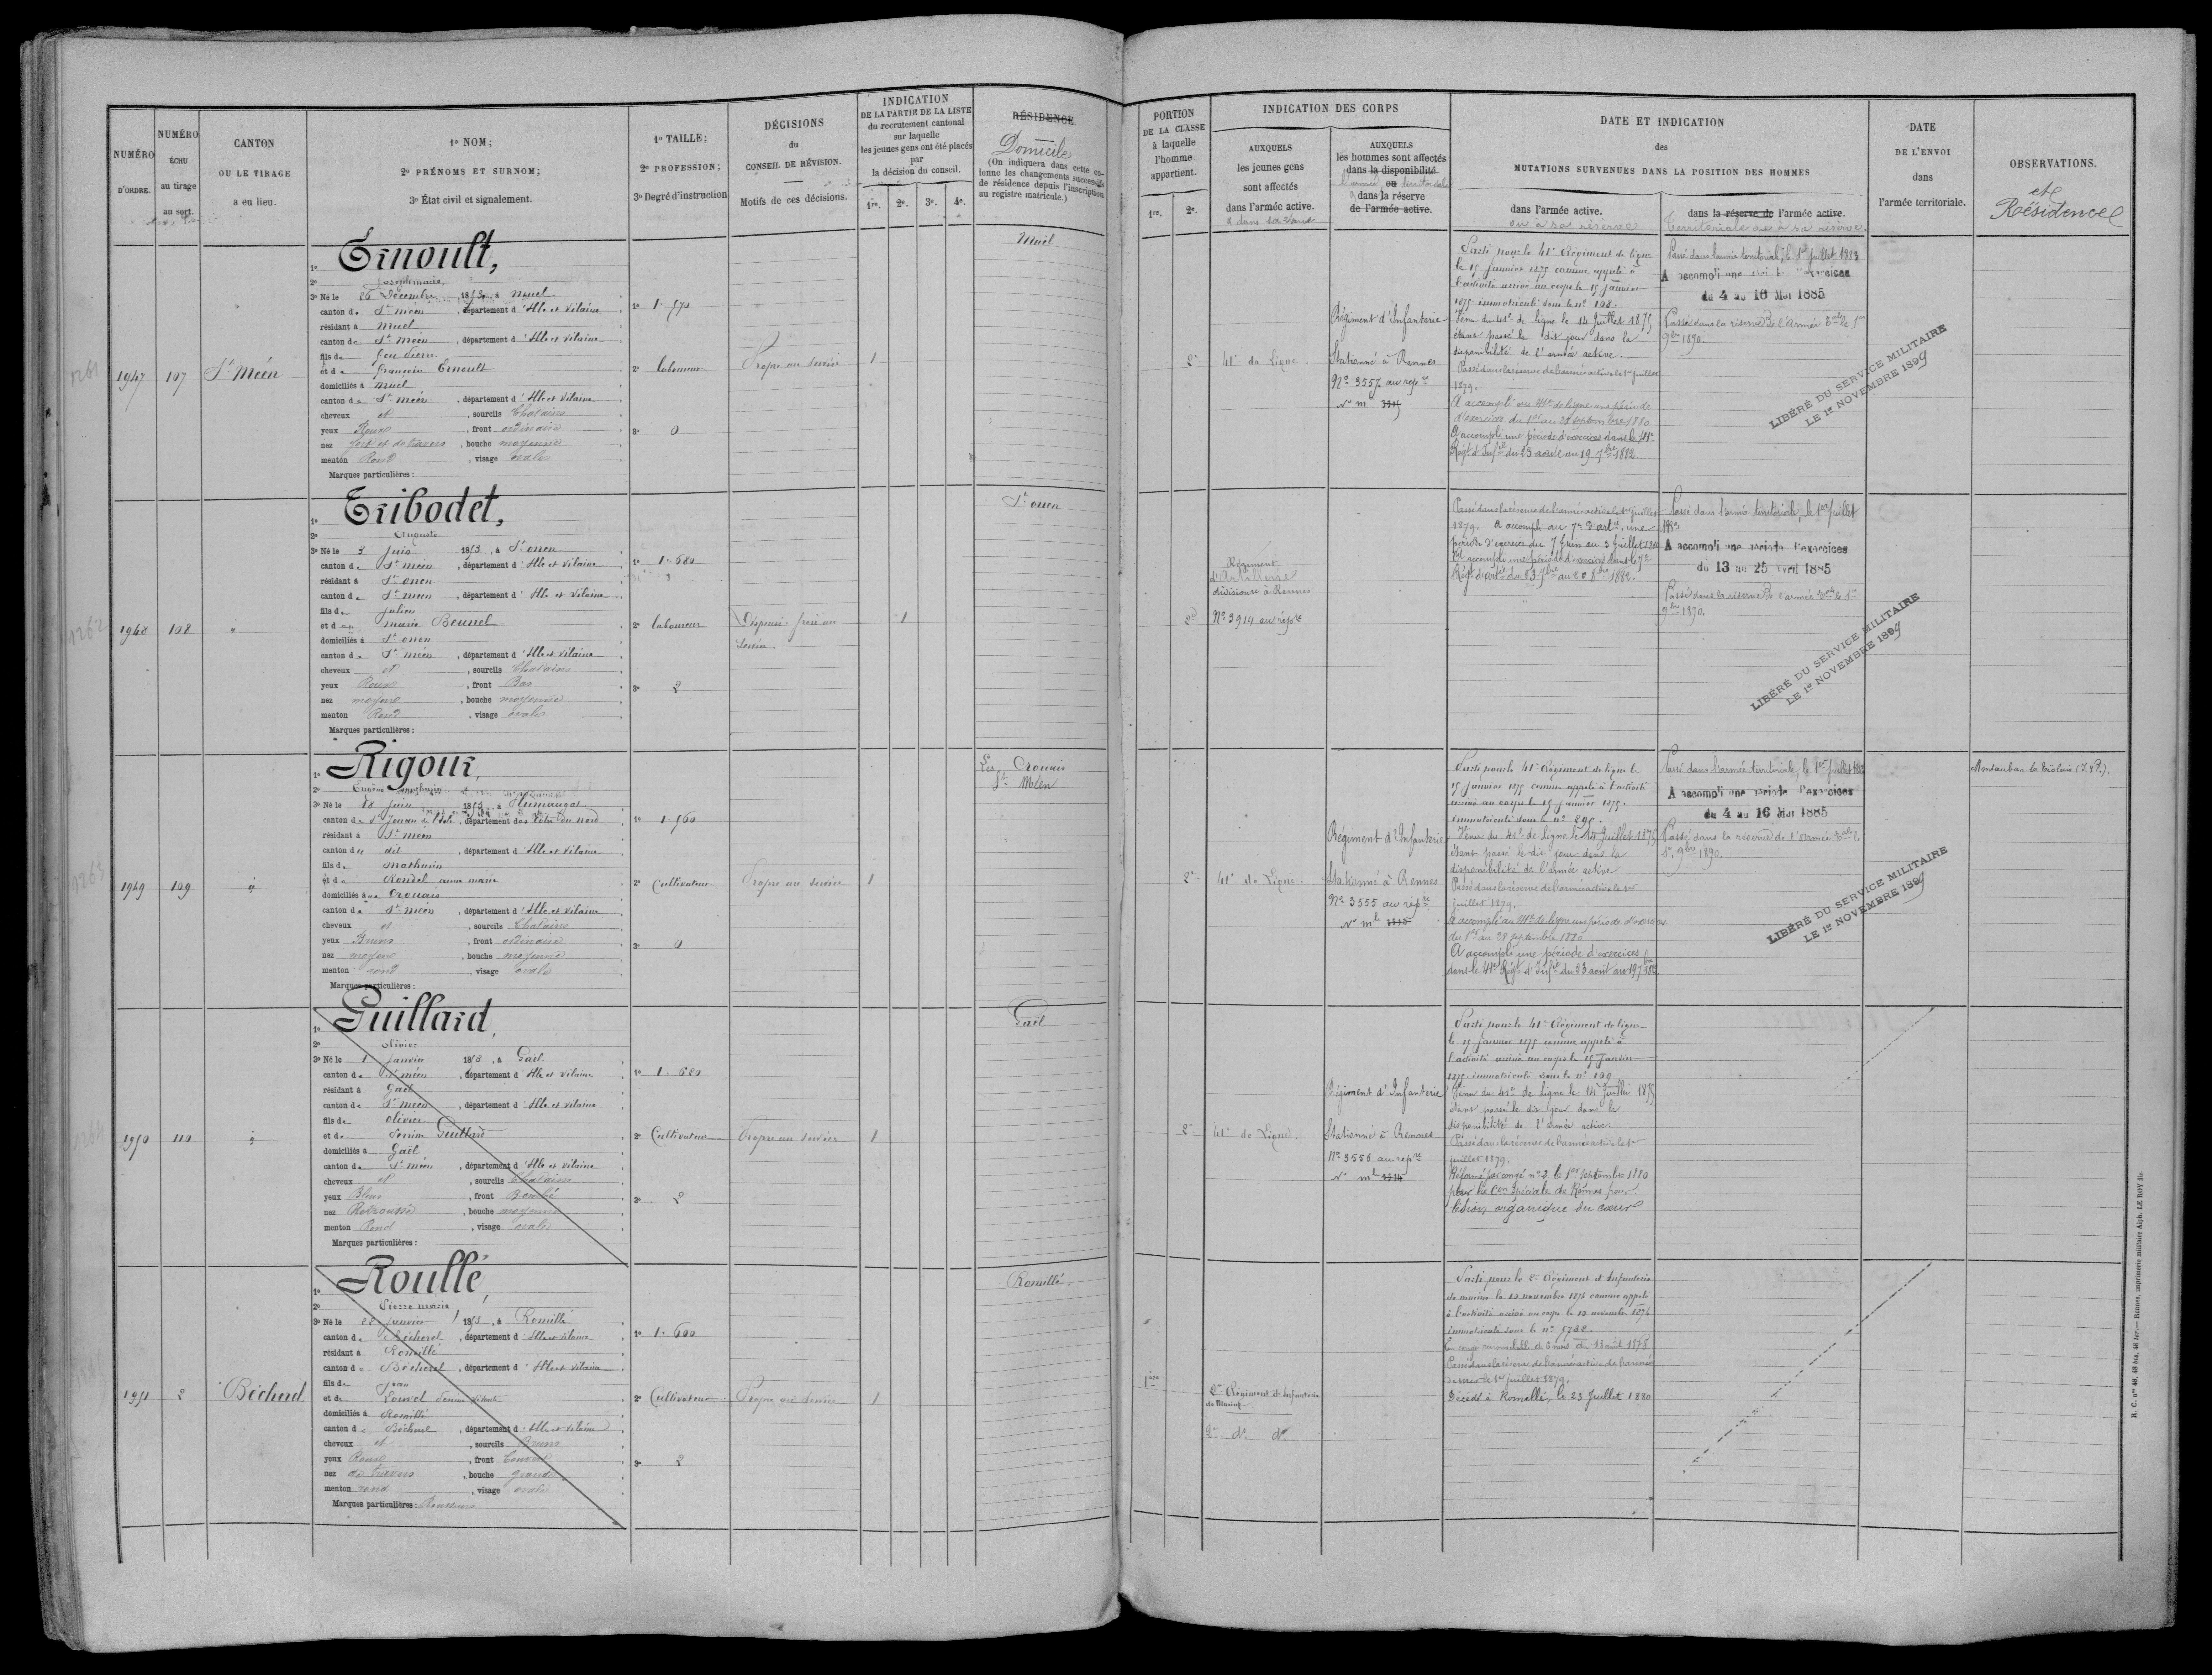 NUMÉRO
D'ORDRE.
NUMÉRO
ÉCHU
au tirage
au sort.
CANTON
OU LE TIRAGE
a eu lieu.
1º NOM;
2º PRÉNOMS ET SURNOM;
3º État civil et signalement.
1º TAILLE;
2º PROFESSION;
3º Degré d'instruction
DÉCISIONS
du
CONSEIL DE RÉVISION.
Motifs de ces décisions.
INDICATION
DE LA PARTIE DE LA LISTE
du recrutement cantonal
sur laquelle
les jeunes gens ont été placés
par
la décision du conseil.
1re. 2e. 3e. 4e.
RÉSIDENCE.
Domicile
(On indiquera dans cette co-
lonne les changements successifs
de résidence depuis l'inscription
au registre matricule.)
PORTION
DE LA CLASSE
à laquelle
l'homme
appartient.
1re. 2e.
INDICATION DES CORPS
AUXQUELS
les jeunes gens
sont affectés
dans l'armée active.
AUXQUELS
les hommes sont affectés
dans la disponibilité
ou
dans la réserve
de l'armée active.
DATE ET INDICATION
des
MUTATIONS SURVENUES DANS LA POSITION DES HOMMES
dans l'armée active.
ou à sa réserve
dans la réserve de l'armée active.
Territoriale ou à sa réserve
DATE
DE L'ENVOI
dans
l'armée territoriale.
OBSERVATIONS.
et
Résidence
1261
1947
107
St Méen
1º Ernoult,
2º
3º Né le 26 Décembre 1853, à Muel
canton de St Méen, département d'Ille et Vilaine
résidant à Muel
canton de St Méen, département d'Ille et Vilaine
fils de feu Pierre
et de françoise Ernoult
domiciliés à Muel
canton de St Méen, département d'Ille et Vilaine
cheveux et, sourcils Chatains
yeux Roux, front ordinaire
nez fort et de travers, bouche moyenne
menton Rond, visage ovale
Marques particulières :
1º 1.570
2º laboureur
3º 0
Propre au service
1
Muel
2e
41e de Ligne.
Régiment d'Infanterie
Stationné à Rennes
Parti pour le 41e Régiment de ligne
le 15 Janvier 1875 comme appelé à
l'activité arrivé au corps le 15 Janvier
1875 immatriculé sous le nº 108.
Venu du 41e de ligne le 14 Juillet 1875
étant passé le dit jour dans la
disponibilité de l'armée active.
Passé dans la réserve de l'armée active le 1er juillet
1879.
A accompli au 41e de ligne une période
d'exercices du 1er au 28 septembre 1880
A accompli une période d'exercices dans le 41e
Régt d'Infie du 23 août au 19 7bre 1882
Passé dans l'armée territoriale, le 1er Juillet 1883
A accompli une période d'exercices
du 4 au 16 Mai 1885
Passé dans la réserve de l'Armée Tale le 1er
9bre 1890.
LIBÉRÉ DU SERVICE MILITAIRE
LE 1er NOVEMBRE 1899
1262
1948
108
"
1º Tribodet,
2º Auguste
3º Né le 3 Juin 1853, à St onen
canton de St Méen, département d'Ille et Vilaine
résidant à St onen
canton de St Méen, département d'Ille et Vilaine
fils de Julien
et de marie Beunel
domiciliés à St onen
canton de St Méen, département d'Ille et Vilaine
cheveux et, sourcils Chatains
yeux Roux, front Bas
nez moyen, bouche moyenne
menton Rond, visage ovale
Marques particulières :
1º 1.680
2º laboureur
3º 2
Dispensé. frère au
service.
1
St onen
2e
Régiment
d'Artillerie
divisionre à Rennes
Nº 3914 au répre
Passé dans la réserve de l'armée active le 1er juillet
1879. A accompli au 7e d'artie une
période d'exercice du 7 Juin au 3 Juillet 1880
A accompli une période d'exercices dans le 7e
Régt d'artie du 23 7bre au 20 8bre 1882.
Passé dans l'armée territoriale, le 1er Juillet
1883
A accompli une période d'exercices
du 13 au 25 avril 1885
Passé dans la réserve de l'armée Tale le 1er
9bre 1890.
LIBÉRÉ DU SERVICE MILITAIRE
LE 1er NOVEMBRE 1899
1263
1949
109
"
1º Rigour,
2º Eugène
3º Né le 18 Juin 1853, à Plumaugat
canton de St Jouan de l'Isle, département des Côtes du nord
résidant à St Méen
canton du dit, département d'Ille et Vilaine
fils de Mathurin
et de Rondel anne marie
domiciliés à Crouais
canton de St Méen, département d'Ille et Vilaine
cheveux et, sourcils Chatains
yeux Bruns, front ordinaire
nez moyen, bouche moyenne
menton rond, visage ovale
Marques particulières :
1º 1.560
2º Cultivateur
3º 0
Propre au service
1
Les Crouais
St Méen
2e
41e de Ligne.
Régiment d'Infanterie
Stationné à Rennes
Nº 3555 au répre
Parti pour le 41e Régiment de ligne le
15 Janvier 1875 comme appelé à l'activité
arrivé au corps le 15 Janvier 1875.
immatriculé sous le nº 295.
Venu du 41e de Ligne le 14 Juillet 1875
étant passé le dit jour dans la
disponibilité de l'armée active
Passé dans la réserve de l'armée active le 1er
juillet 1879.
A accompli au 41e de ligne une période d'exercices
du 1er au 28 septembre 1880
A accompli une période d'exercices
dans le 41e Régt d'Infie du 23 août au 19 7bre 1882
Passé dans l'armée territoriale, le 1er Juillet 1883
A accompli une période d'exercices
du 4 au 16 Mai 1885
Passé dans la réserve de l'Armée Tale le
1er 9bre 1890.
LIBÉRÉ DU SERVICE MILITAIRE
LE 1er NOVEMBRE 1899
Montauban
1264
1950
110
"
1º Guillard,
2º Olivier
3º Né le 1 Janvier 1853, à Gaël
canton de St Méen, département d'Ille et Vilaine
résidant à Gaël
canton de St Méen, département d'Ille et Vilaine
fils de Olivier
et de Perrine Guillard
domiciliés à Gaël
canton de St Méen, département d'Ille et Vilaine
cheveux et, sourcils Chatains
yeux Bleus, front Bombé
nez Retroussé, bouche moyenne
menton Rond, visage ovale
Marques particulières :
1º 1.680
2º Cultivateur
3º 2
Propre au service
1
Gaël
2e
41e de Ligne.
Régiment d'Infanterie
Stationné à Rennes
Nº 3556 au répre
Parti pour le 41e Régiment de ligne
le 15 Janvier 1875 comme appelé à
l'activité arrivé au corps le 15 Janvier
1875 immatriculé sous le nº 109
Venu du 41e de Ligne le 14 Juillet 1875
étant passé le dit jour dans la
disponibilité de l'armée active.
Passé dans la réserve de l'armée active le 1er
juillet 1879.
Réformé par congé nº 2 le 1er septembre 1880
par la Con Spéciale de Rennes pour
lésion organique du cœur
1951
2
Bécherel
1º Roullé,
2º Pierre marie
3º Né le 22 Janvier 1853, à Romillé
canton de Bécherel, département d'Ille et Vilaine
résidant à Romillé
canton de Bécherel, département d'Ille et Vilaine
fils de Jean
et de Louvel
domiciliés à Romillé
canton de Bécherel, département d'Ille et Vilaine
cheveux et, sourcils Bruns
yeux Roux, front Couvert
nez de travers, bouche grande
menton rond, visage ovale
Marques particulières : Rousseurs
1º 1.600
2º Cultivateur
3º 2
Propre au service
1
Romillé.
1ère
2e Régiment d'Infanterie
de Marine.
2e dº dº
Parti pour le 2e Régiment d'Infanterie
de marine le 10 novembre 1874 comme appelé
à l'activité arrivé au corps le 10 novembre 1874
immatriculé sous le nº 5782.
Passé dans la réserve de l'armée active de l'armée
de mer le 1er juillet 1879.
Décédé à Romillé, le 23 Juillet 1880
R. C. nos 40, 48 bis, 48 ter. — Rennes, imprimerie militaire Alph. LE ROY fils.